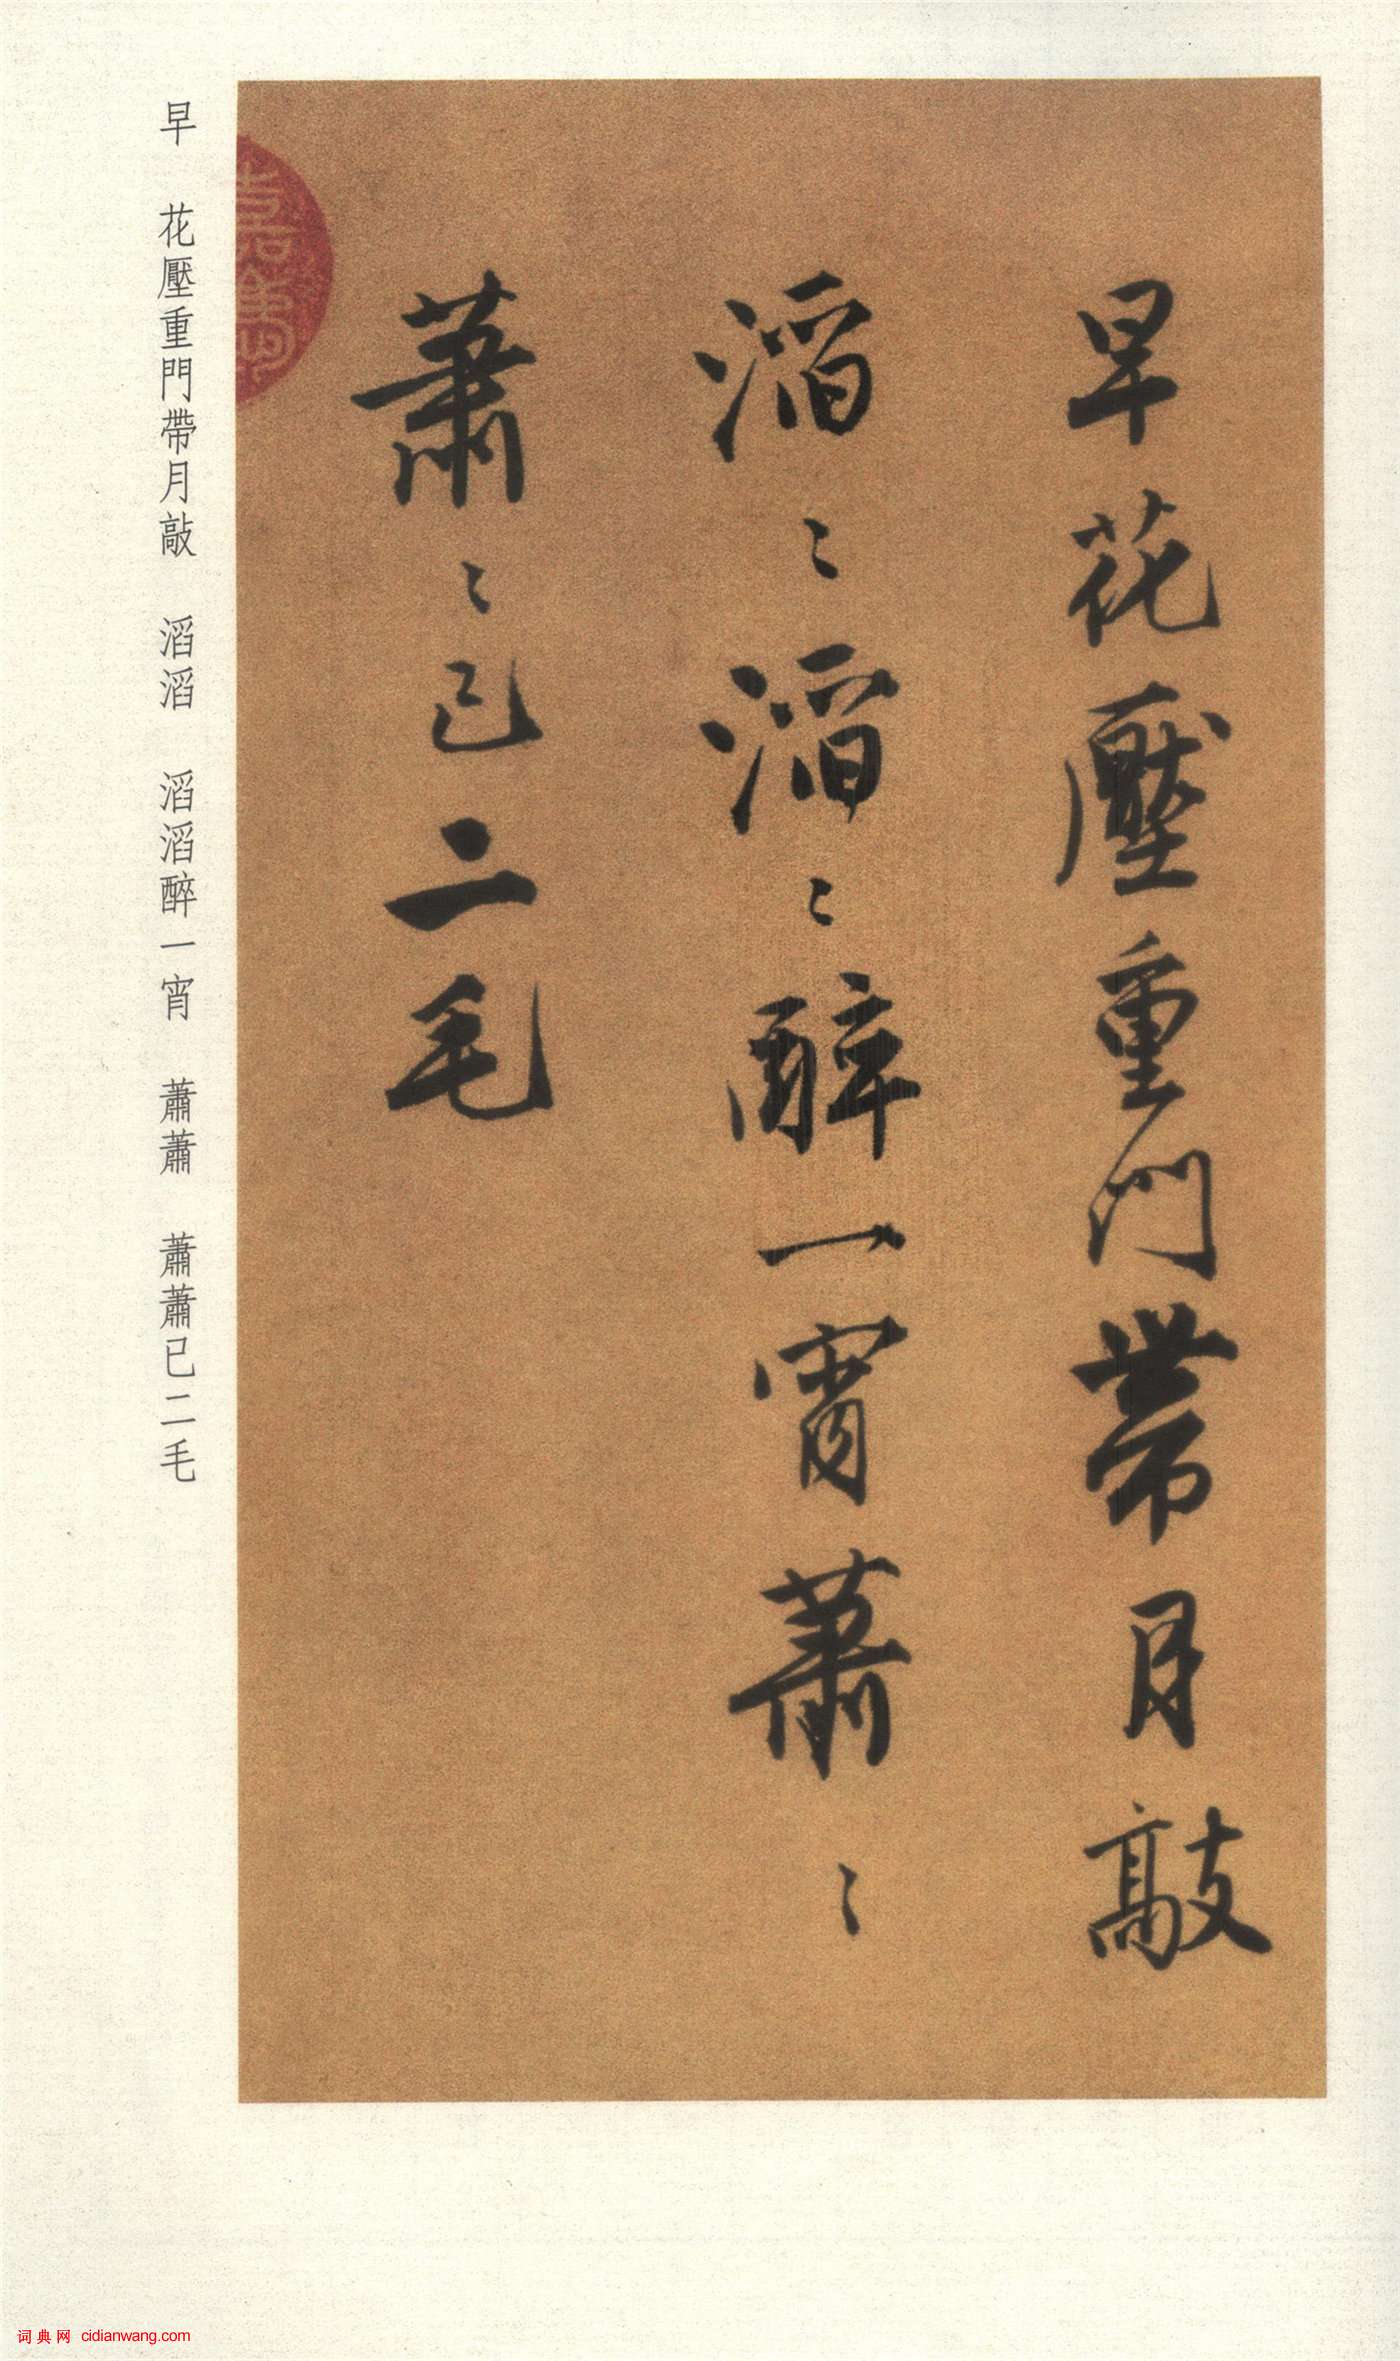 早花壓重門帶月敲
滔〻滔〻醉一宵蕭〻
蕭〻已二毛
早 花壓重門帶月敲 滔滔 滔滔醉一宵 蕭蕭 蕭蕭已二毛
词典网 cidianwang.com